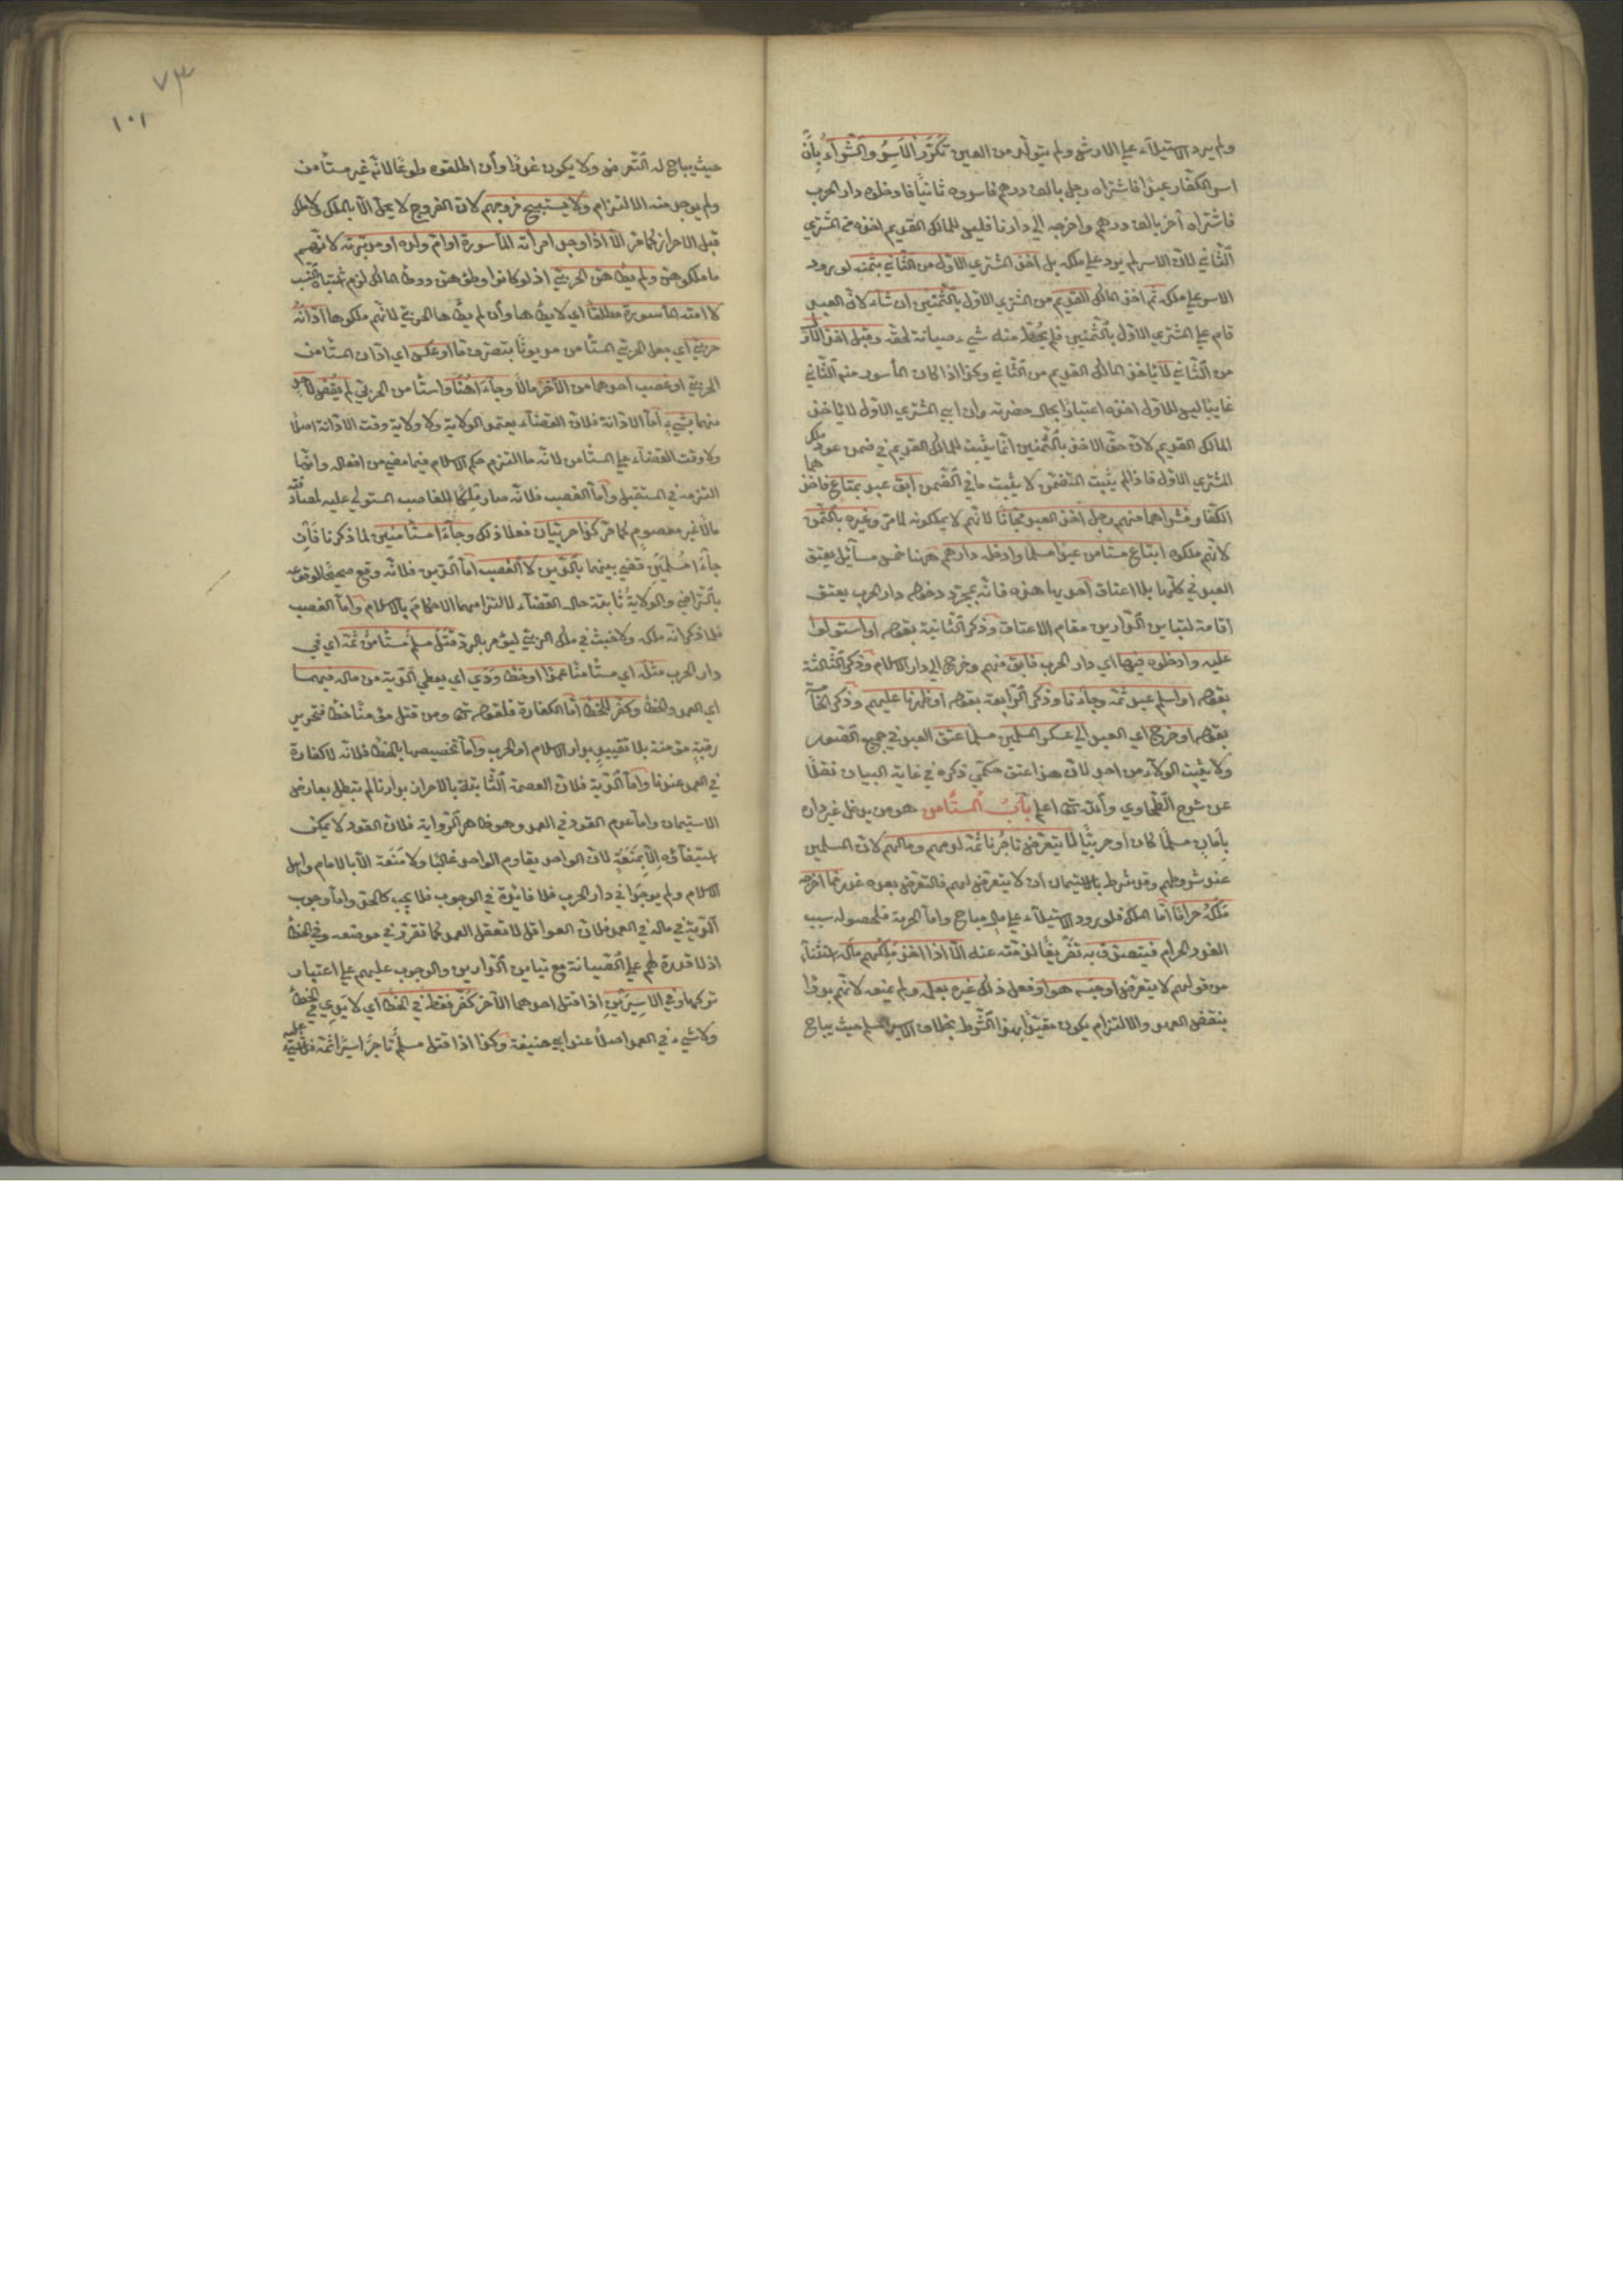 ولم يرد الاستيلاء على الارش ولم يتولد من العين تكرر الأسر والشراء بأن
اسر الكفار عبدا فاشتراه رجل بالف درهم فاسروه ثانيا فادخلوه دار الحرب
فاشتراه آخر بالف درهم واخرجه الى دارنا فليس للمالك القديم اخذه من المشتري
الثاني لان الاسر لم يرد على ملكه بل اخذ المشتري الاول من الثاني بثمنه لورود
الاسر على ملكه ثم اخذ المالك القديم من المشتري الاول بالثمنين ان شاء لان العبد
قام على المشتري الاول بالثمنين فلم يحط منه شيء صيانة لحقه وقبل اخذ الاول
من الثاني لا يأخذ المالك القديم من الثاني وكذا اذا كان المأسور منه الثاني
غايبا ليس للاول اخذه اعتبارا بحال حضرته وان ابى المشتري الاول لا يأخذ
المالك القديم لان حق الاخذ بالثمنين انما يثبت للمالك القديم في ضمن عود ملك
المشتري الاول فاذا لم يثبت المتضمن لا يثبت ما في الضمن ابق عبد بمتاع فاخذهما
الكفار وشراهما منهم رجل اخذ العبد مجانا لانهم لا يملكونه لما مر وغيره بالثمن
لانهم ملكوه ابتاع مستأمن عبدا مسلما وادخله دارهم ههنا خمس مسائل يعتق
العبد في كلها بلا اعتاق احديها هذه فانه بمجرد دخوله دار الحرب يعتق
اقامة لتباين الدارين مقام الاعتاق وذكر الثانية بقوله او استولوا
عليه وادخلوه فيها اي دار الحرب فابق منهم وخرج الى دار الاسلام وذكر الثالثة
بقوله او اسلم عبد ثمه وجاءنا وذكر الرابعة بقوله او ظهرنا عليهم وذكر الخامسة
بقوله او خرج اي العبد الى عسكر المسلمين مسلما عتق العبد في جميع الصور
ولا يثبت الولاء من احد لان هذا عتق حكمي ذكره في غاية البيان نقلا
عن شرح الطحاوي والله تعالى اعلم باب المستأمن هو من يدخل غير داره
بامان مسلما كان او حربيا لا يتعرض تاجرنا ثمه لدمهم ومالهم لان المسلمين
عند شروطهم وقد شرط بالاستيمان ان لا يتعرض لهم فالتعرض بعده غدر فما اخرجه
ملكه حراما اما الملك فلورود الاستيلاء على مال مباح واما الحرمة فلحصوله بسبب
الغدر الحرام فيتصدق به تفريغا لذمته عنه الا اذا اخذ ملكهم ماله استثناء
من قولهم لا يتعرض او حبسه هو او فعل ذلك غيره بعلمه ولم يمنعه لانهم بدؤا
بنقض العهد والالتزام يكون مقيدا بهذا الشرط بخلاف الاسير المسلم حيث يباح
٧٣
١٠١
حيث يباح له التعرض ولا يكون غدرا وان اطلقوه طوعا لانه غير مستأمن
ولم يوجد منه الالتزام ولا يستبيح فروجهم لان الفروج لا يحل الا بالملك ولا ملك
قبل الاحراز كما مر الا اذا وجد امرأته المأسورة او ام ولده او مدبرته لانهم
ما ملكوهن ولم يطأهن الحربي اذ لو كانوا وطئوهن ووطئ المالك لزم اشتباه النسب
لا امته المأسورة مطلقا اي لا يطأها وان لم يطأها الحربي لانهم ملكوها ادانه
حربي اي جعل الحربي المستأمن مديونا بتصرف ما او عكس اي ادان المستأمن
الحربي او غصب احدهما من الآخر مالا وجاءا هنا واستأمن الحربي لم يقض لاحد
منهما بشيء اما الادانة فلان القضاء يعتمد الولاية ولا ولاية وقت الادانة اصلا
ولا وقت القضاء على المستأمن لانه ما التزم حكم الاسلام فيما مضى من افعاله وانما
التزمه في المستقبل واما الغصب فلانه صار ملكا للغاصب المستولي عليه لمصادفته
مالا غير معصوم كما مر كذا حربيان فعلا ذلك وجاءا مستأمنين لما ذكرنا فان
جاءا مسلمين قضي بينهما بالدين لا الغصب اما الدين فلانه وقع صحيحا لوقوعه
بالتراضي والولاية ثابتة حال القضاء لالتزامهما الاحكام بالاسلام واما الغصب
فلما ذكر انه ملكه ولا خبث في ملك الحربي ليؤمر بالرد قتل مسلم مستأمن ثمه اي في
دار الحرب مثله اي مستأمنا عمدا او خطأ ودي اي يعطي الدية من ماله فيهما
اي العمد والخطأ وكفر للخطأ اما الكفارة فلقوله تعالى ومن قتل مؤمنا خطأ فتحرير
رقبة مؤمنة بلا تقييد بدار الاسلام او الحرب واما تخصيصها بالخطأ فلانه لا كفارة
في العمد عندنا واما الدية فلان العصمة الثابتة بالاحراز بدارنا لم تبطل بعارض
الاستيمان واما عدم القود في العمد وهو ظاهر الرواية فلان القود لا يمكن
استيفاؤه الا بمنعة لان الواحد يقاوم الواحد غالبا ولا منعة الا بالامام واهل
الاسلام ولم يوجدا في دار الحرب فلا فائدة في الوجوب فلا يجب كالحق واما وجوب
الدية في ماله في العمد فلان العواقل لا تعقل العمد كما تقرر في موضعه وفي الخطأ
اذ لا قدرة لهم على الصيانة مع تباين الدارين والوجوب عليهم على اعتبار
تركها وفي الاسيرين اذا قتل احدهما الآخر كفر فقط في الخطأ اي لا يدي في الخطأ
ولا شيء في العمد اصلا عند ابي حنيفة وكذا اذا قتل مسلم تاجر اسيرا ثمه